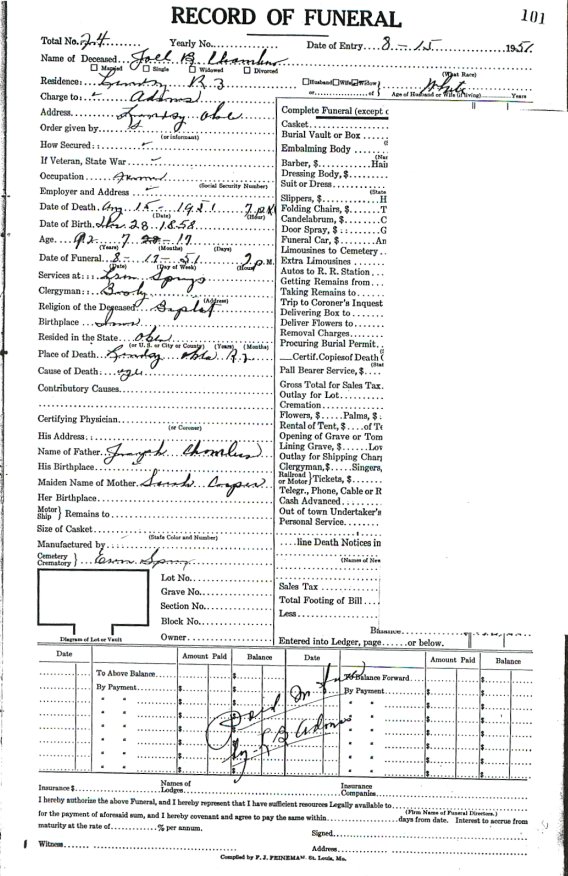 RECORD OF FUNERAL
101
Total No. 24 Yearly No. Date of Entry 8-15 1951
Name of Deceased B Chambers
Married Single Widowed Divorced
(What Race)
Residence: Lindsay R 3 Husband Wife Widow or of White Age of Husband or Wife (if living) Years
Charge to: Adams
Address. Lindsay Okla
Order given by
(or informant)
How Secured:
If Veteran, State War
Occupation
(Social Security Number)
Employer and Address
Date of Death Aug 15-1951 7 p M
(Date) (Hour)
Date of Birth. 28 1858
Age. 92 7 17
(Years) (Months) (Days)
Date of Funeral 8-17-51 2 p M.
(Date) (Day of Week) (Hour)
Services at: Springs
Clergyman:
(Address)
Religion of the Deceased Baptist
Birthplace
Resided in the State Okla
(or U. S. or City or County) (Years) (Months)
Place of Death Lindsay Okla R 3
Cause of Death age
Contributory Causes
Certifying Physician
(or Coroner)
His Address:
Name of Father Chambers
His Birthplace
Maiden Name of Mother Sarah Cooper
Her Birthplace
Motor Ship } Remains to
Size of Casket
(State Color and Number)
Manufactured by
Cemetery Crematory } Erin Springs
Lot No.
Grave No.
Section No.
Block No.
Owner
Diagram of Lot or Vault
Complete Funeral (except c
Casket
Burial Vault or Box
Embalming Body
(Nar
Barber, $ Hair
Dressing Body, $
Suit or Dress
(State
Slippers, $ H
Folding Chairs, $ T
Candelabrum, $ C
Door Spray, $ G
Funeral Car, $ An
Limousines to Cemetery
Extra Limousines
Autos to R. R. Station
Getting Remains from
Taking Remains to
Trip to Coroner's Inquest
Delivering Box to
Deliver Flowers to
Removal Charges
Procuring Burial Permit
Certif. Copies of Death (
(Stat
Pall Bearer Service, $
Gross Total for Sales Tax
Outlay for Lot
Cremation
Flowers, $ Palms, $
Rental of Tent, $ of Te
Opening of Grave or Tom
Lining Grave, $ Lov
Outlay for Shipping Charg
Clergyman, $ Singers,
Railroad or Motor } Tickets, $
Telegr., Phone, Cable or R
Cash Advanced
Out of town Undertaker's
Personal Service
line Death Notices in
(Names of New
Sales Tax
Total Footing of Bill
Less
Balance
Entered into Ledger, page or below.
Date Amount Paid Balance Date Amount Paid Balance
To Above Balance $ To Balance Forward $
By Payment $ By Payment $
" " $ " " $
" " $ " " $
" " $ " " $
" " $ " " $
" " $ " " $
" " $ " " $
Paid In full
by B Adams
Insurance $ Names of Lodges Insurance Companies
I hereby authorize the above Funeral, and I hereby represent that I have sufficient resources Legally available to
(Firm Name of Funeral Directors.)
for the payment of aforesaid sum, and I hereby covenant and agree to pay the same within days from date. Interest to accrue from
maturity at the rate of % per annum. Signed
Witness Address
Compiled by F. J. FEINEMAN. St. Louis, Mo.